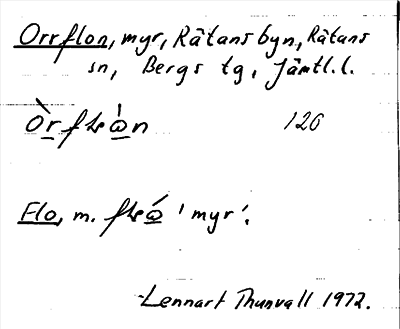 Orrflon, myr, Rätansbyn, Rätans
sn, Bergs tg, Jämtl.l.
126
Flo, m. 'myr'.
Lennart Thunvall 1972.